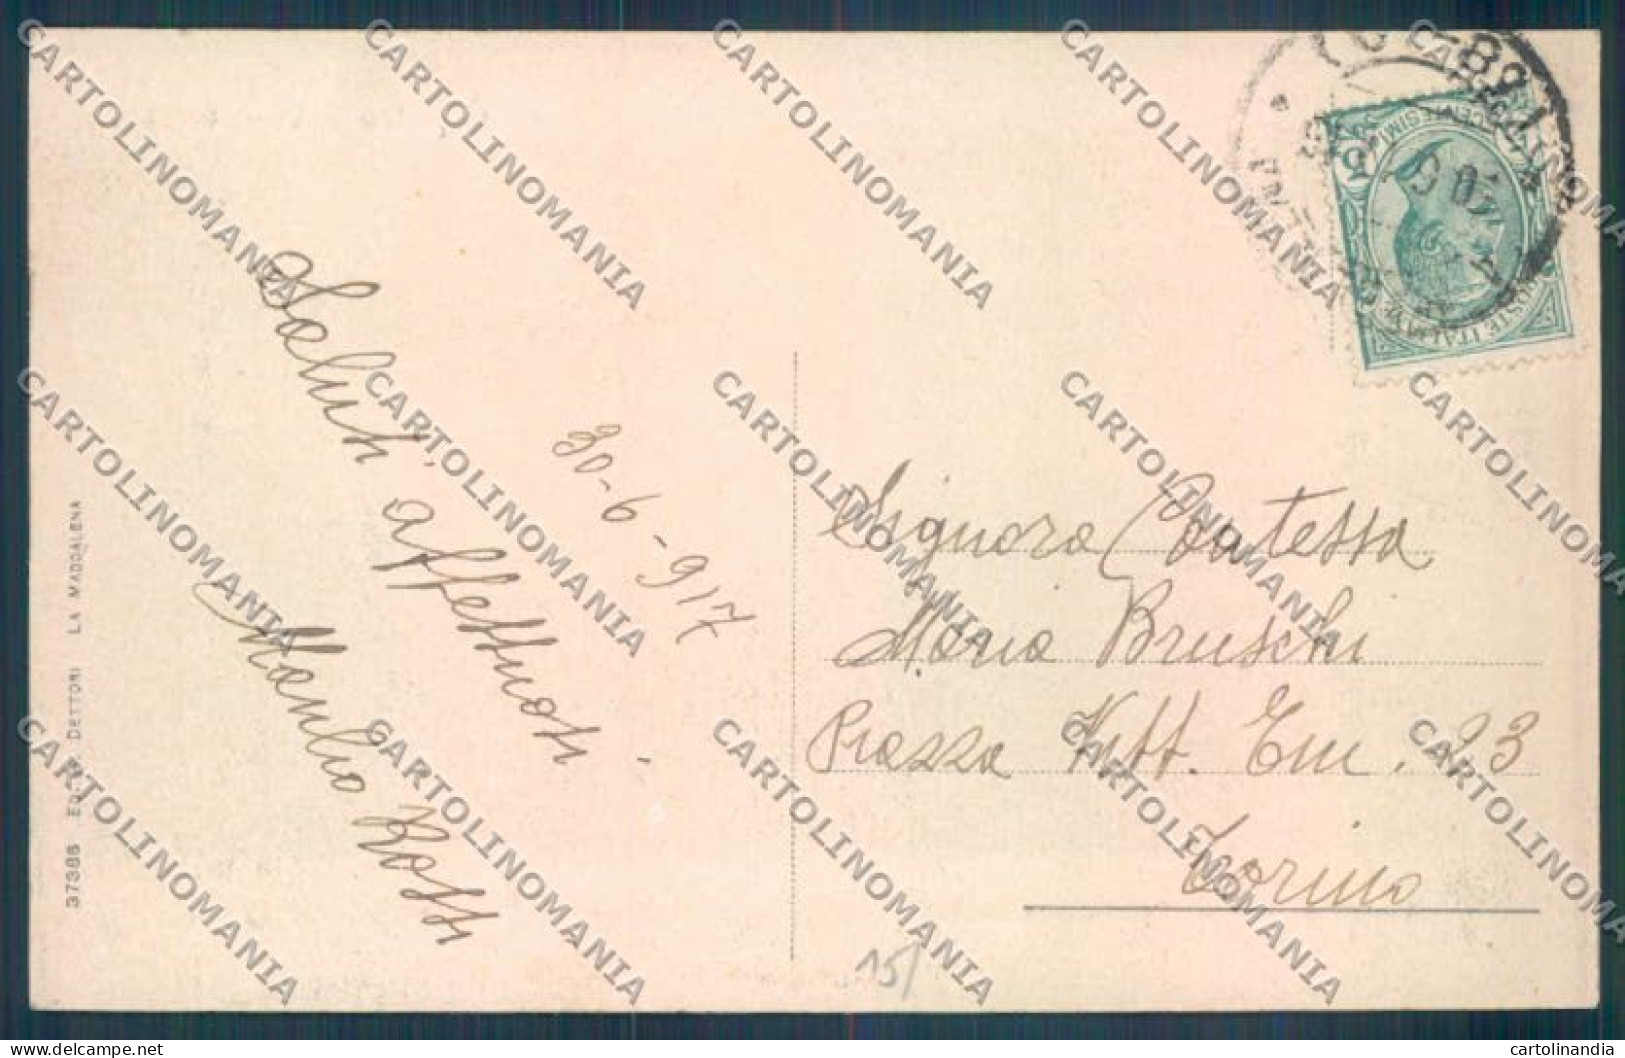 Saluti
affettuosi
Manlio Rossi
30-6-917
Signora Contessa
Maria Bruschi
Piazza Vitt. Em. 23
Torino
15/
37386 ED. DETTORI LA MADDALENA
POSTE ITALIANE
CENTESIMI
5
CARTOLINOMANIA
delcampe.net
cartolinandia